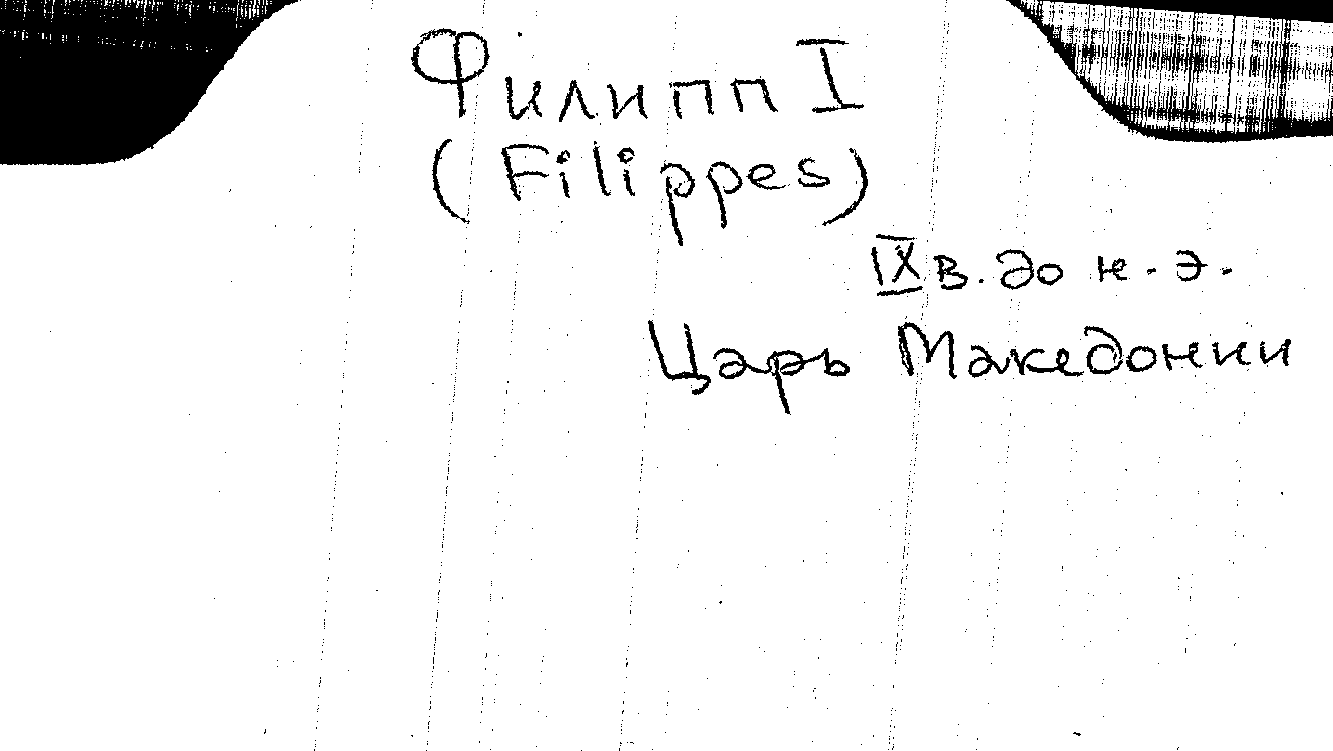 Филипп I
(Filippes)
IX в. до н. э.
Царь Македонии